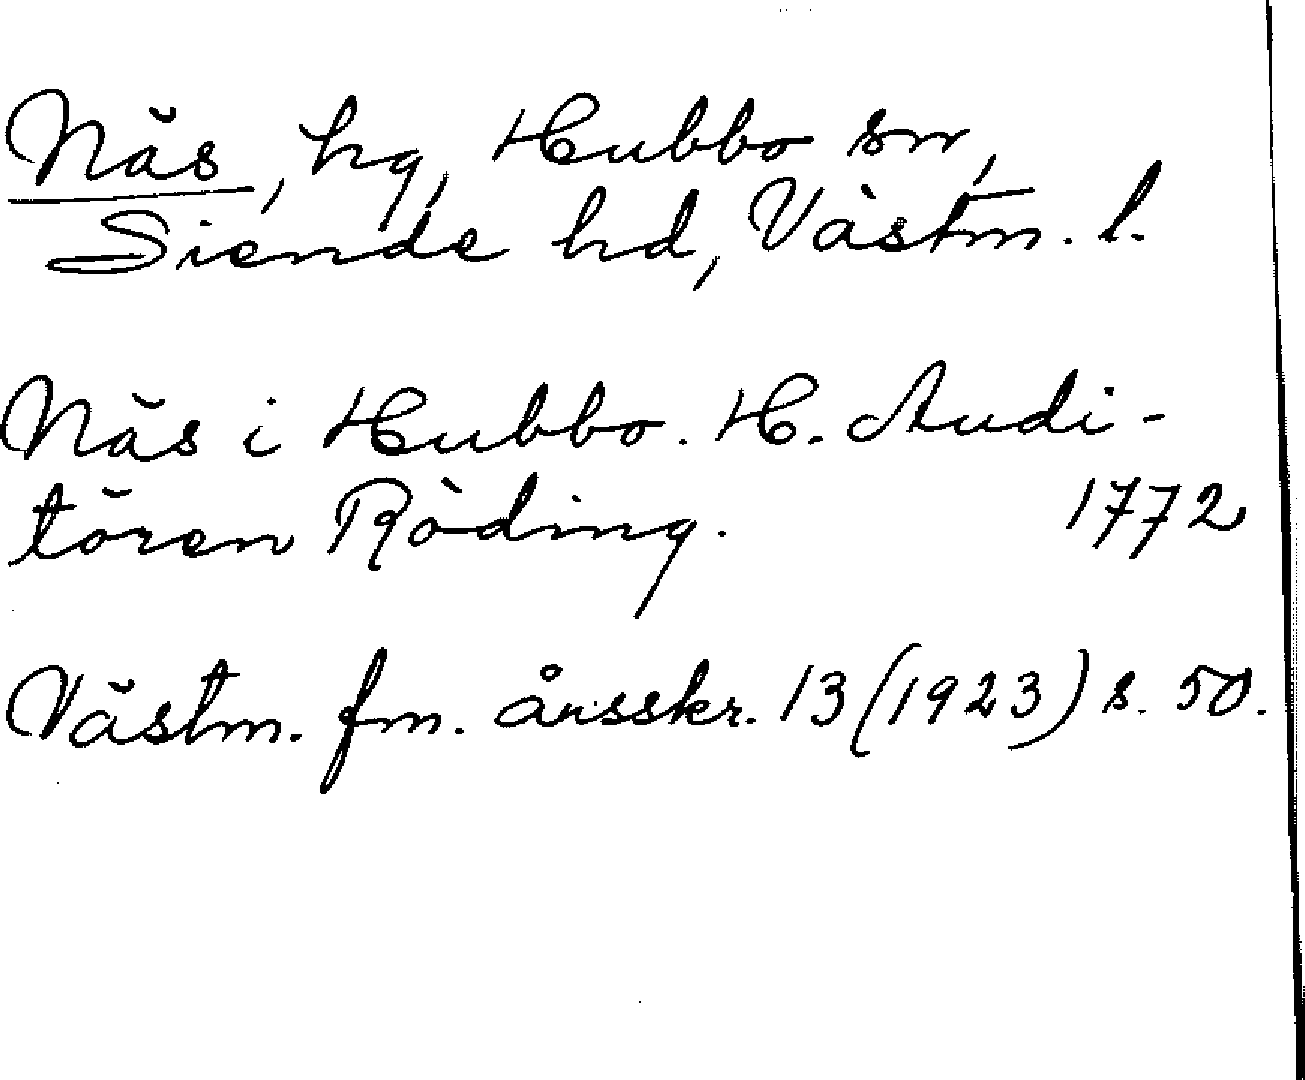 Näs, hg, Hubbo sn,
Siende hd, Västm. l.
Näs i Hubbo. H. Audi-
tören Röding. 1772
Västm. fm. årsskr. 13 (1923) s. 50.